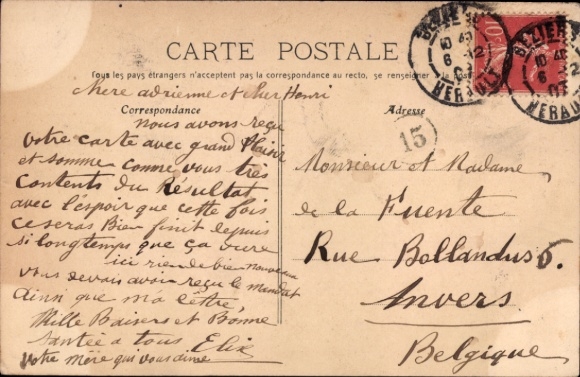 CARTE POSTALE
Tous les pays étrangers n'acceptent pas la correspondance au recto, se renseigner à la poste
Correspondance
Adresse
BEZIERS
HERAULT
BEZIERS
HERAULT
15
Chere adrienne et cher Henri
nous avons reçu
votre carte avec grand plaisir
et somme comme vous très
contents du Résultat
avec l'espoir que cette fois
ce seras Bien finit depuis
si longtemps que ça dure
ici rien de bien nouveau
vous devais avoir reçu le mandat
Ainsi que ma lettre,
Mille Baisers et Bonne
Santée a tous Elix
votre mère qui vous aime
Monsieur et Madame
de la Fuente
Rue Bollandus 6.
Anvers
Belgique